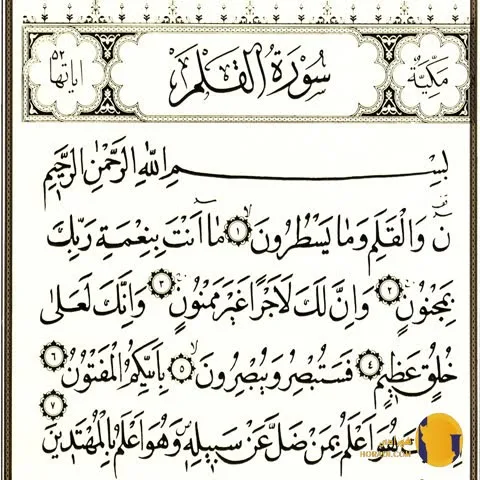 مَكِّيَّة سُورَةُ الْقَلَمِ اياتها ٥٢
بِسْمِ اللَّهِ الرَّحْمَٰنِ الرَّحِيمِ
نٓ وَالْقَلَمِ وَمَا يَسْطُرُونَ ۙ ﴿١﴾ مَٓا اَنْتَ بِنِعْمَةِ رَبِّكَ
بِمَجْنُونٍ ﴿٢﴾ وَاِنَّ لَكَ لَاَجْرًا غَيْرَ مَمْنُونٍ ﴿٣﴾ وَاِنَّكَ لَعَلٰى
خُلُقٍ عَظِيمٍ ﴿٤﴾ فَسَتُبْصِرُ وَيُبْصِرُونَ ۙ ﴿٥﴾ بِاَيِّكُمُ الْمَفْتُونُ ﴿٦﴾
هُوَ اَعْلَمُ بِمَنْ ضَلَّ عَنْ سَبِيلِهِ وَهُوَ اَعْلَمُ بِالْمُهْتَدِينَ ﴿٧﴾
HORADI.COM